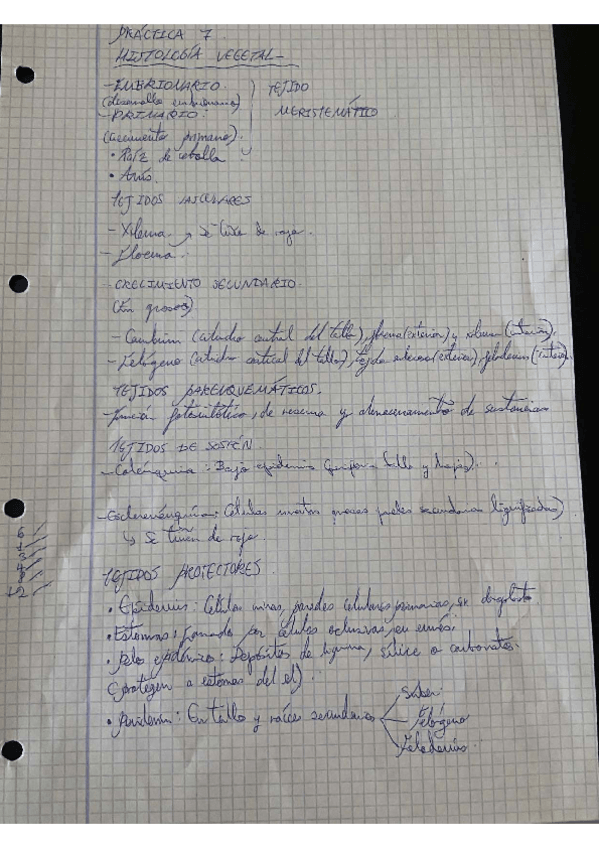 PRÁCTICA 7
HISTOLOGÍA VEGETAL-
- EMBRIONARIO. TEJIDO
(desarrollo embrionario)
- PRIMARIO: MERISTEMÁTICO
(crecimiento primario).
• Raíz de cebolla
• Anís.
TEJIDOS VASCULARES
- Xilema. → Se tiñe de rojo.
- Floema.
- CRECIMIENTO SECUNDARIO.
(En grosor)
- Cambium (cilindro central del tallo), floema (exterior) y xilema (interior).
- Felógeno (cilindro cortical del tallo), tejido (exterior), felodermis (interior).
TEJIDOS PARENQUEMÁTICOS.
- Función fotosintética, de reserva y almacenamiento de sustancias
TEJIDOS DE SOSTÉN.
- Colénquima: Bajo epidermis tallo y hojas).
- Esclerénquima: Células muertas paredes secundarias lignificadas)
↳ Se tiñen de rojo.
TEJIDOS PROTECTORES.
• Epidermis: Células vivas, paredes celulares primarias, sin
• Estomas: formado por células oclusivas, en envés.
• Pelos epidérmicos: Depósitos de lignina, sílice o carbonatos.
(protegen a estomas del
• Peridermis: En tallo y raíces secundarios
Súber.
Felógeno
Felodermis.